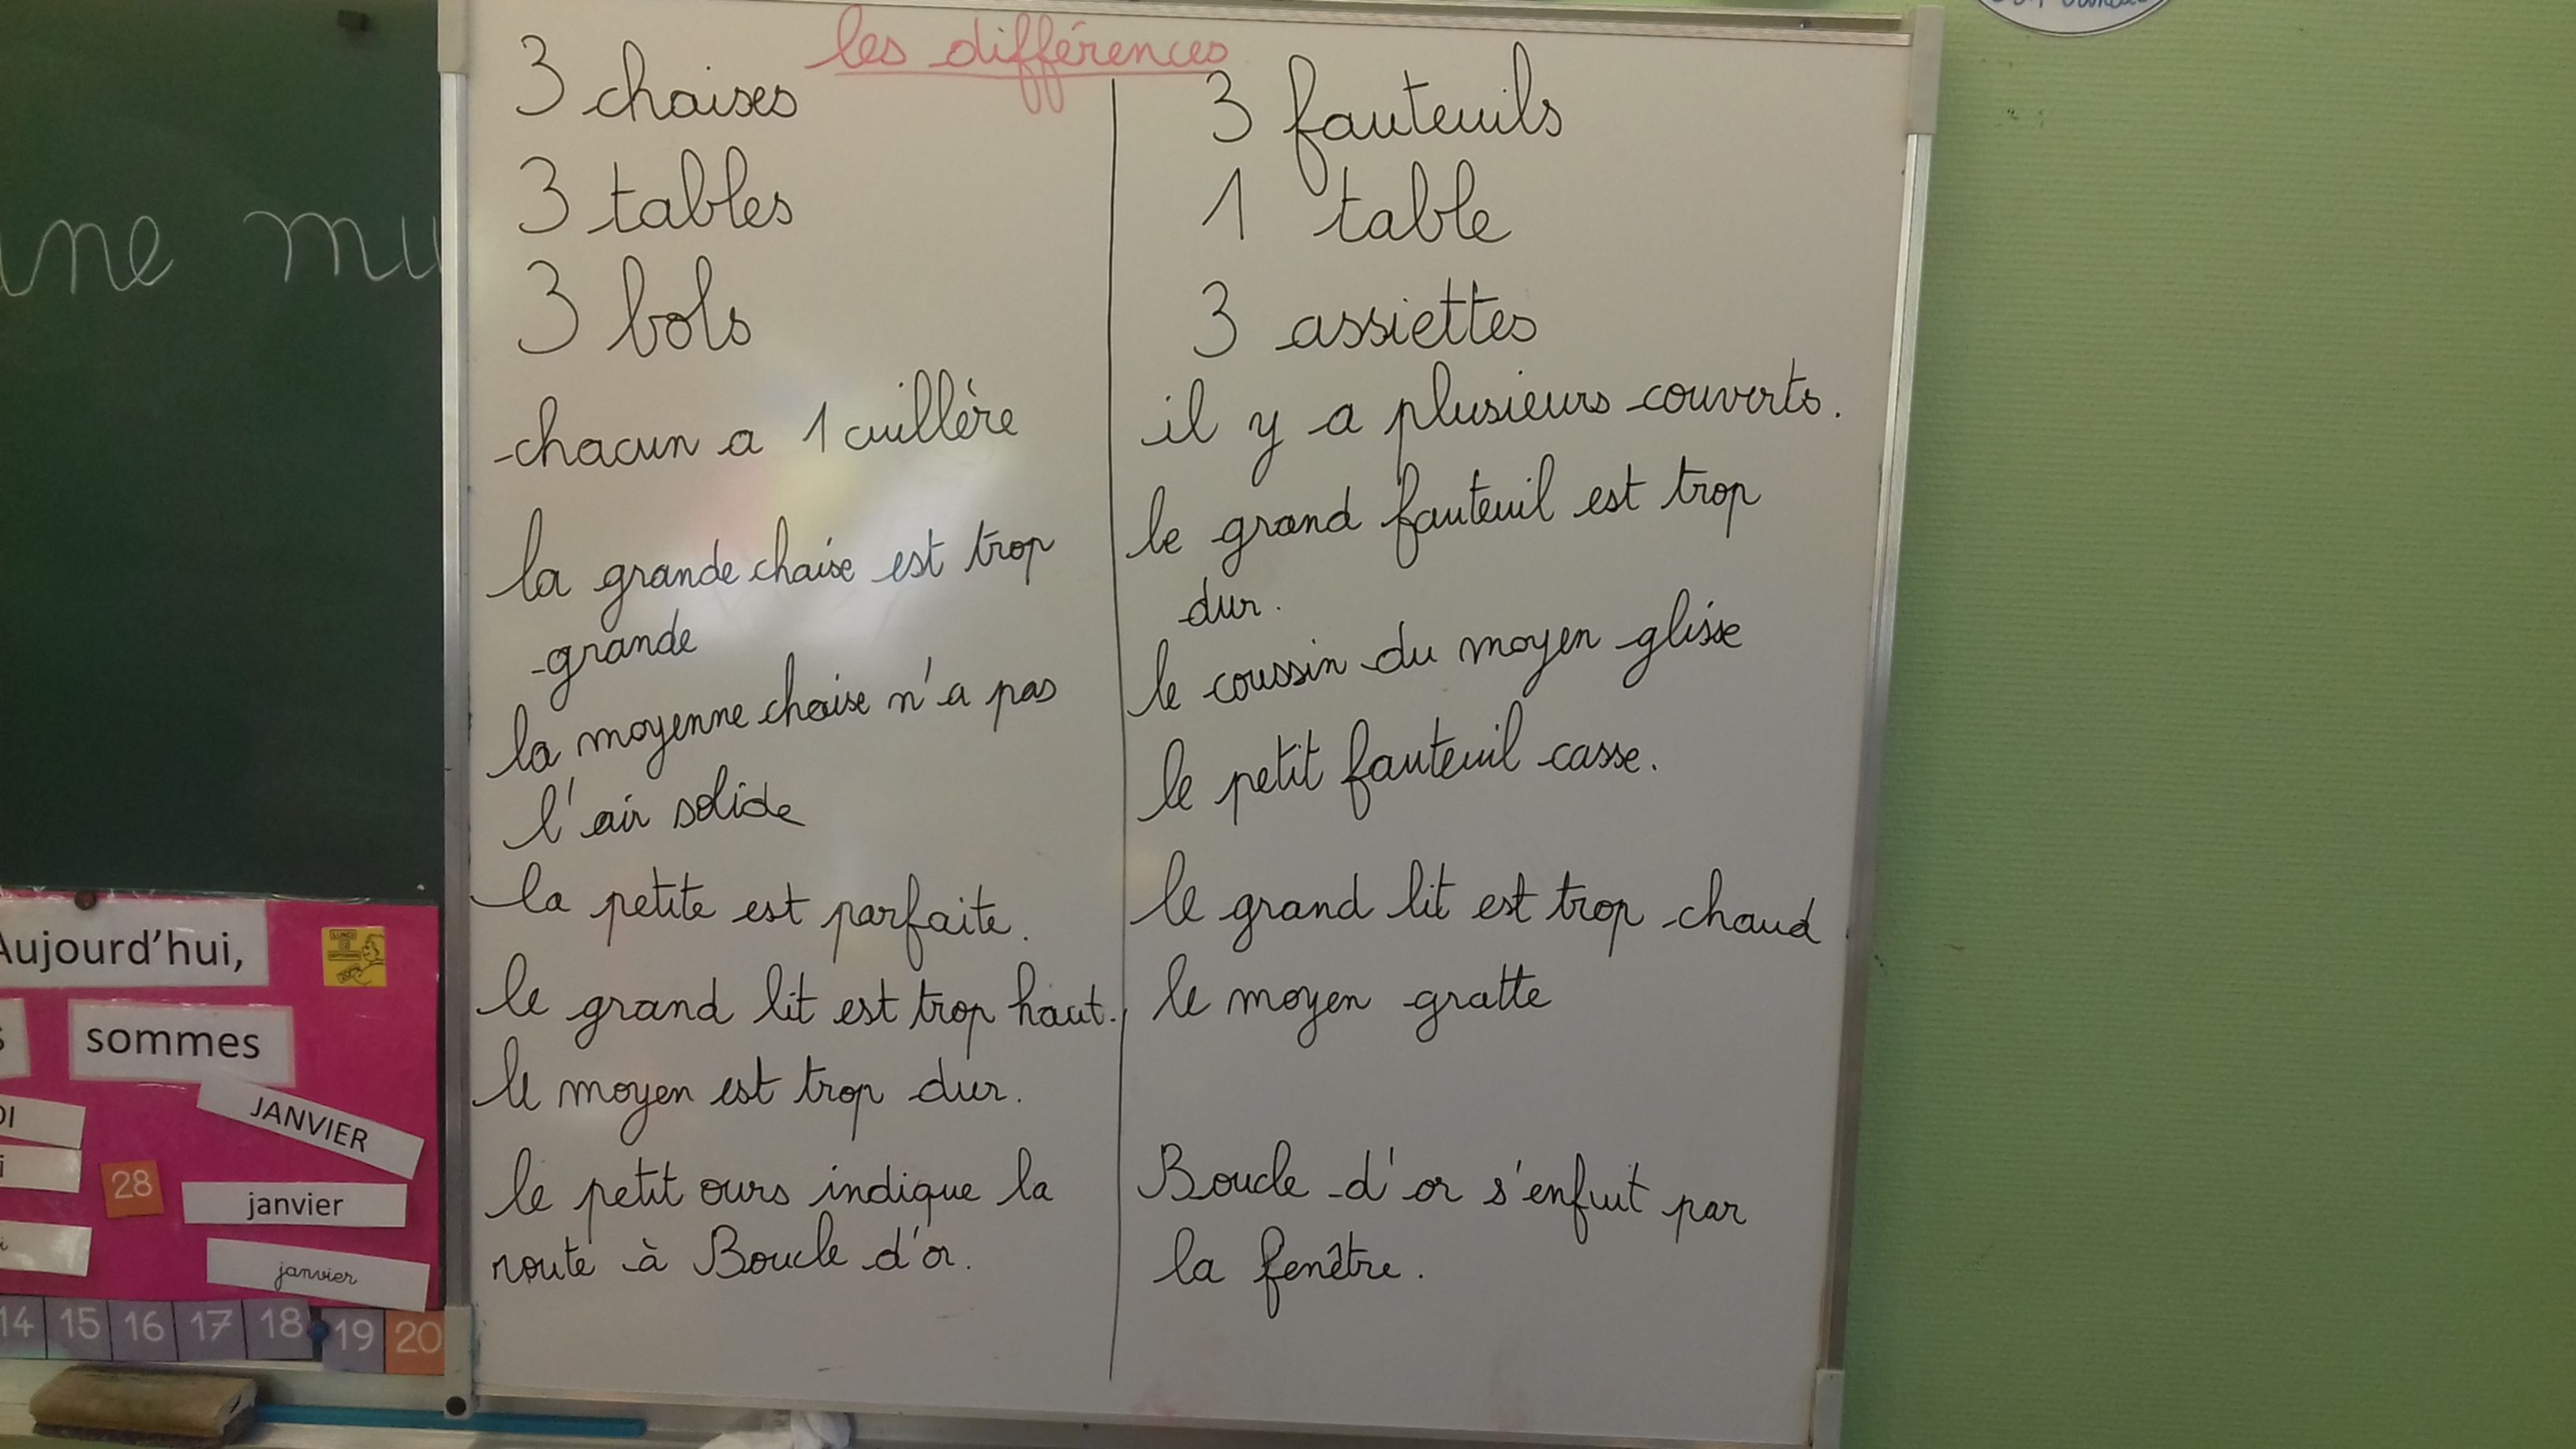 les différences
3 chaises
3 tables
3 bols
chacun a 1 cuillère
la grande chaise est trop
grande
la moyenne chaise n'a pas
l'air solide
la petite est parfaite.
le grand lit est trop haut.
le moyen est trop dur.
le petit ours indique la
route à Boucle d'or.
3 fauteuils
1 table
3 assiettes
il y a plusieurs couverts.
le grand fauteuil est trop
dur.
le coussin du moyen glisse
le petit fauteuil casse.
le grand lit est trop chaud.
le moyen gratte
Boucle d'or s'enfuit par
la fenêtre.
Aujourd'hui,
sommes
JANVIER
28
janvier
janvier
14 15 16 17 18 19 20